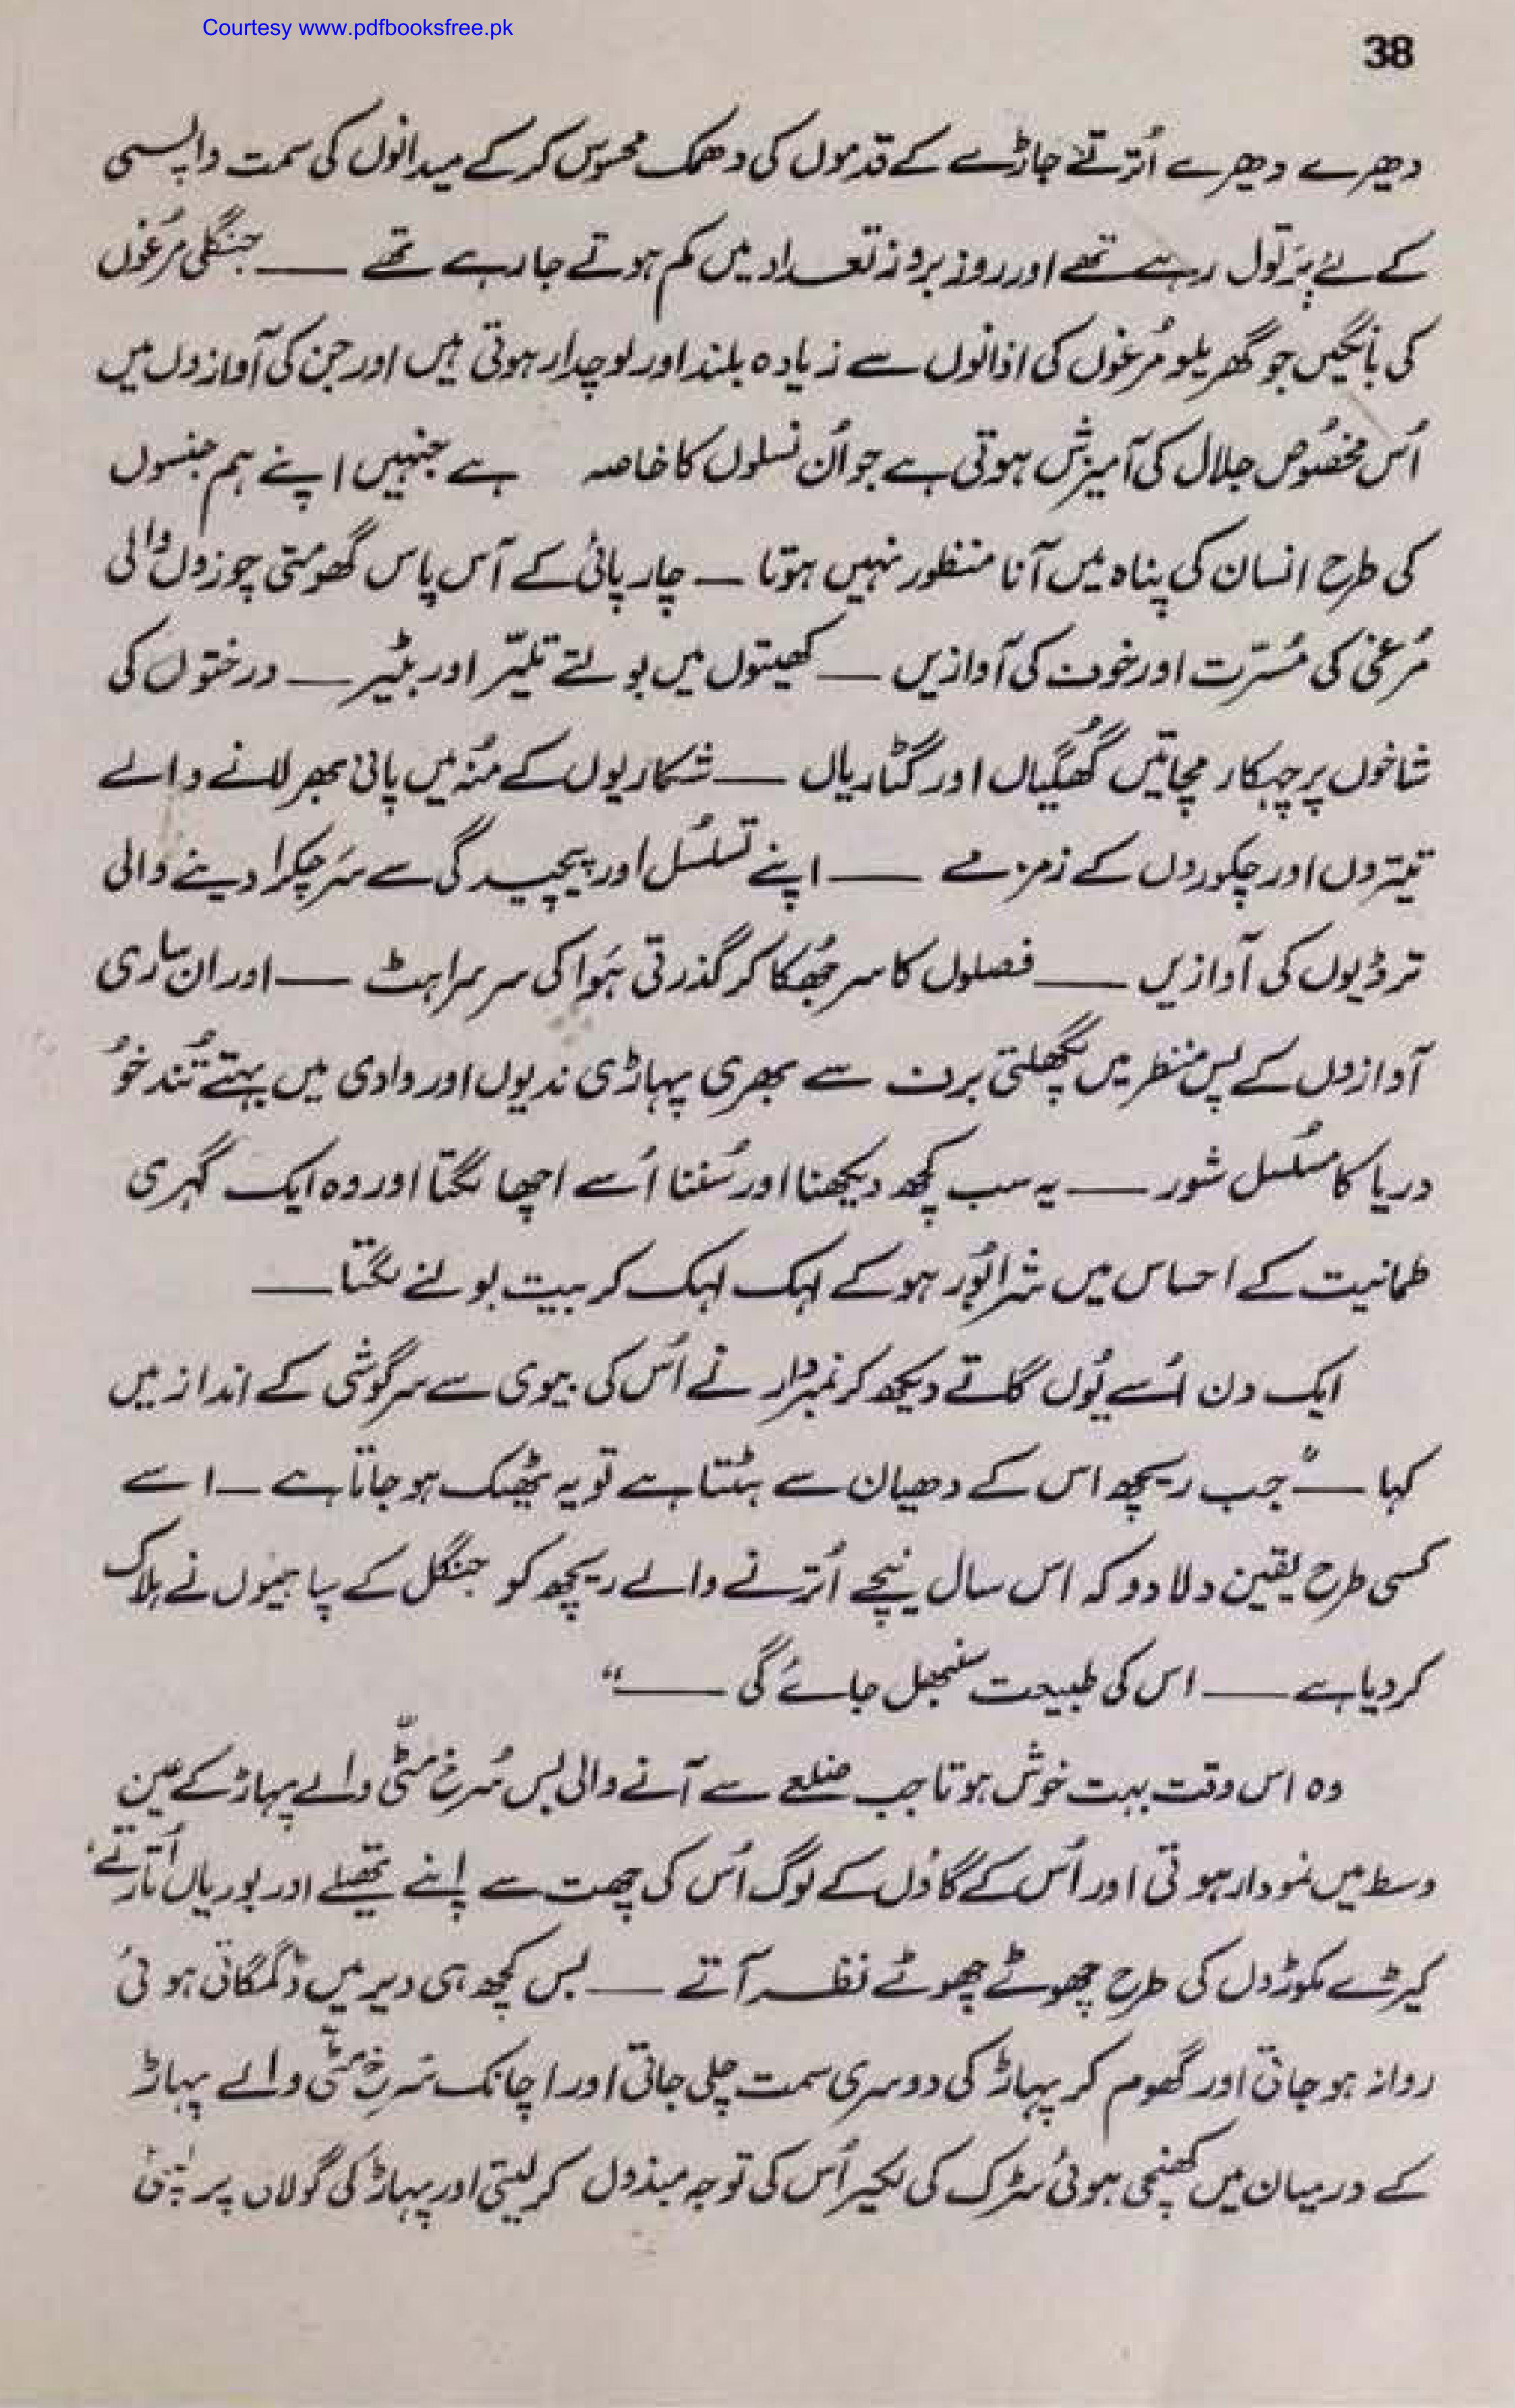 Courtesy www.pdfbooksfree.pk
38
دھیرے دھیرے اُترتے جاڑے کے قدموں کی دھمک محسوس کر کے میدانوں کی سمت واپسی
کے لئے پَر تول رہے تھے اور روز بروز تعداد میں کم ہوتے جا رہے تھے — جنگلی مُرغوں
کی بانگیں جو گھریلو مُرغوں کی اذانوں سے زیادہ بلند اور لوچدار ہوتی ہیں اور جن کی آوازوں میں
اُس مخصُوص جلال کی آمیزش ہوتی ہے جو اُن نسلوں کا خاصہ ہے جنہیں اپنے ہم جنسوں
کی طرح انسان کی پناہ میں آنا منظور نہیں ہوتا — چارپائی کے آس پاس گھومتی چوزوں والی
مُرغی کی مُسرّت اور خوف کی آوازیں — کھیتوں میں بولتے تلیّر اور بٹیر — درختوں کی
شاخوں پر چہکار مچاتیں گھُگیاں اور گٹاریاں — شکاریوں کے مُنہ میں پانی بھر لانے والے
تیتروں اور چکوروں کے زمزمے — اپنے تسلسُل اور پیچیدگی سے سَر چکرا دینے والی
ترڈیوں کی آوازیں — فصلوں کا سر جُھکا کر گذرتی ہَوا کی سرسراہٹ — اور ان ساری
آوازوں کے پس منظر میں پگھلتی برف سے بھری پہاڑی ندیوں اور وادی میں بہتے تُند خُو
دریا کا مسُلسل شور — یہ سب کچھ دیکھنا اور سُننا اُسے اچھا لگتا اور وہ ایک گہری
طمانیت کے احساس میں شرابُور ہو کے لہک لہک کر بیت بولنے لگتا —
ایک دن اُسے یُوں گاتے دیکھ کر نمبردار نے اُس کی بیوی سے سرگوشی کے انداز میں
کہا — "جب ریچھ اس کے دھیان سے ہٹتا ہے تو یہ ٹھیک ہو جاتا ہے — اسے
کسی طرح یقین دلا دو کہ اس سال نیچے اُترنے والے ریچھ کو جنگل کے سپاہیوں نے ہلاک
کر دیا ہے — اس کی طبیعت سنبھل جائے گی —"
وہ اس وقت بہت خوش ہوتا جب ضلعے سے آنے والی بس سُرخ مٹّی والے پہاڑ کے عین
وسط میں نمودار ہوتی اور اُس کے گاؤں کے لوگ اُس کی چھت سے اپنے تھیلے اور بوریاں اُتارتے،
کیڑے مکوڑوں کی طرح چھوٹے چھوٹے نظر آتے — بس کچھ ہی دیر میں ڈگمگاتی ہوئی
روانہ ہو جاتی اور گھوم کر پہاڑ کی دوسری سمت چلی جاتی اور اچانک سُرخ مٹّی والے پہاڑ
کے درمیان میں کھنچی ہوئی سڑک کی لکیر اُس کی توجہ مبذول کر لیتی اور پہاڑ کی گولائی پر